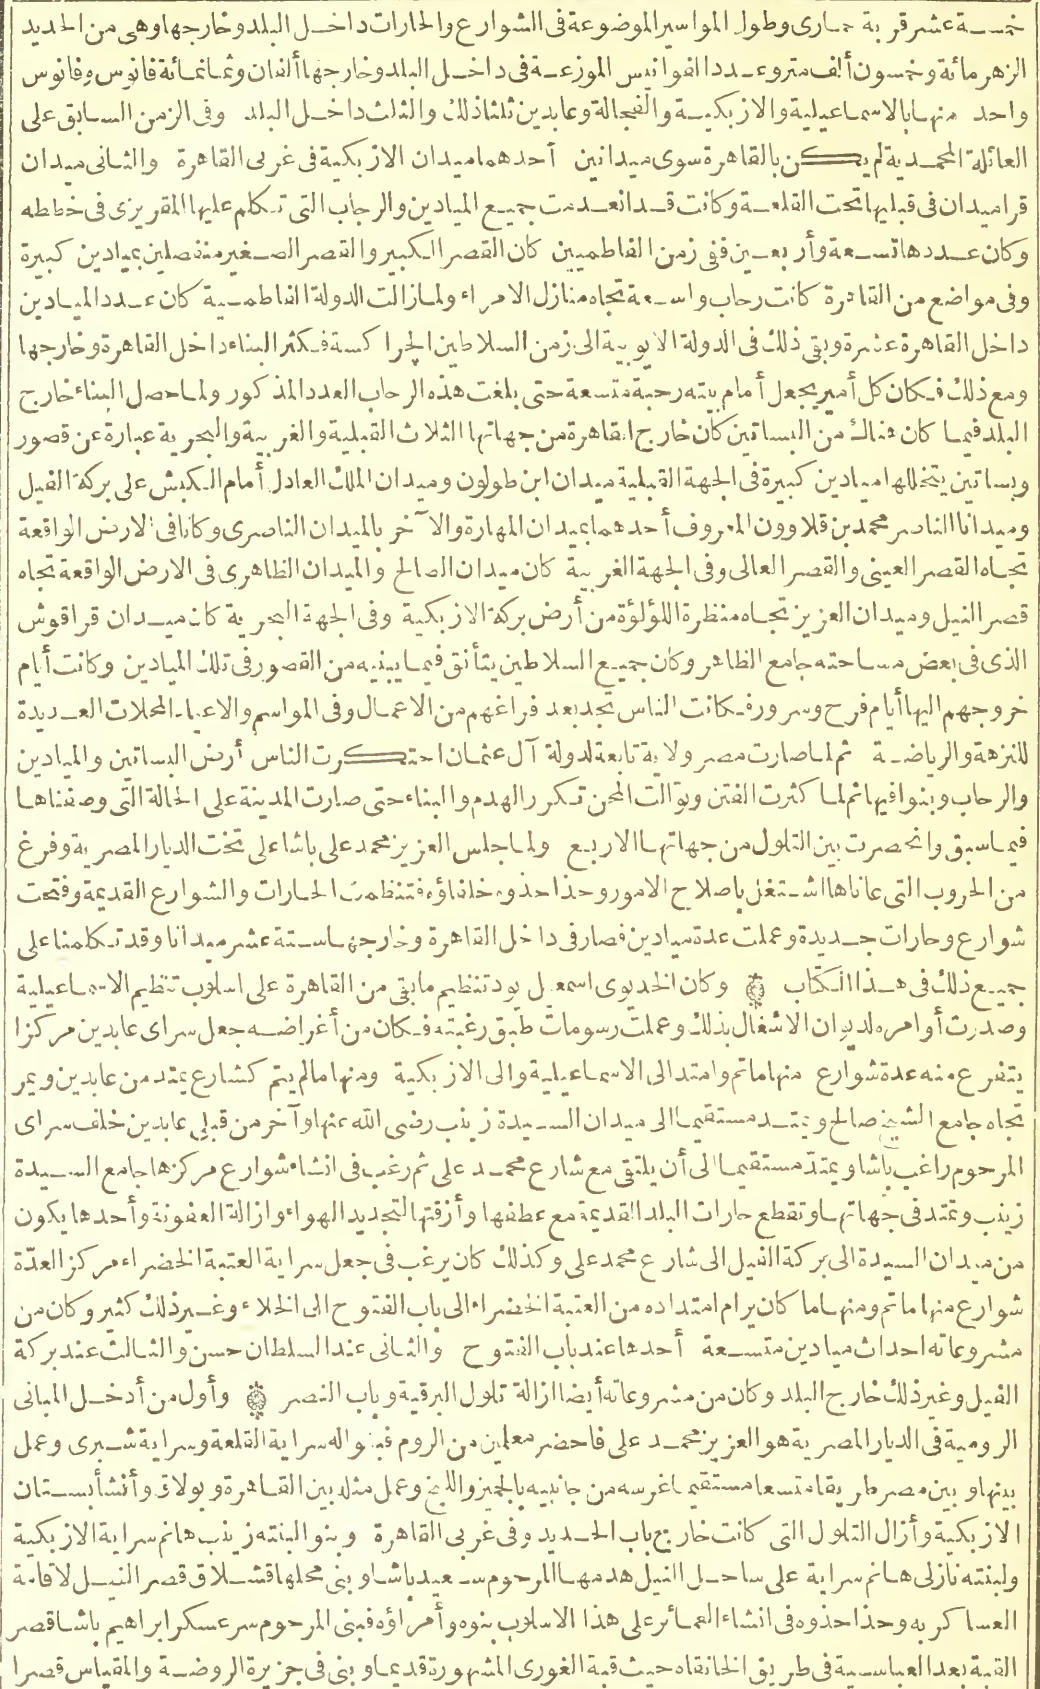 خمسة عشر قربة حمارى وطول المواسير الموضوعة فى الشوارع والحارات داخل البلد وخارجها وهى من الحديد
الزهر مائة وخمسون ألف متر وعدد الفوانيس الموزعة فى داخل البلد وخارجها ألفان وثمانمائة فانوس وفانوس
واحد منها بالاسماعيلية والازبكية والفجالة وعابدين ثلثا ذلك والثلث داخل البلد وفى الزمن السابق على
العائلة المحمدية لم يكن بالقاهرة سوى ميدانين أحدهما ميدان الازبكية فى غربى القاهرة والثانى ميدان
قراميدان فى قبليها تحت القلعة وكانت قد انعدمت جميع الميادين والرحاب التى تكلم عليها المقريزى فى خططه
وكان عددها تسعة وأربعين ففى زمن الفاطميين كان القصر الكبير والقصر الصغير منفصلين بميادين كبيرة
وفى مواضع من القاهرة كانت رحاب واسعة تجاه منازل الامراء ولما زالت الدولة الفاطمية كان عدد الميادين
داخل القاهرة عشرة وبقى ذلك فى الدولة الايوبية الى زمن السلاطين الجراكسة فكثر البناء داخل القاهرة وخارجها
ومع ذلك فكان كل أمير يجعل أمام بيته رحبة متسعة حتى بلغت هذه الرحاب العدد المذكور ولما حصل البناء خارج
البلد فيما كان هناك من البساتين كان خارج القاهرة من جهاتها الثلاث القبلية والغربية والبحرية عبارة عن قصور
وبساتين يتخللها ميادين كبيرة فى الجهة القبلية ميدان ابن طولون وميدان الملك العادل أمام الكبش على بركة الفيل
وميدانا الناصر محمد بن قلاوون المعروف أحدهما بميدان المهارة والآخر بالميدان الناصرى وكانا فى الارض الواقعة
تجاه القصر العينى والقصر العالى وفى الجهة الغربية كان ميدان الصالح والميدان الظاهرى فى الارض الواقعة تجاه
قصر النيل وميدان العزيز تجاه منظرة اللؤلؤة من أرض بركة الازبكية وفى الجهة البحرية كان ميدان قراقوش
الذى فى بعض مساحته جامع الظاهر وكان جميع السلاطين يتأنق فيما يبنيه من القصور فى تلك الميادين وكانت أيام
خروجهم اليها أيام فرح وسرور فكانت الناس تجد بعد فراغهم من الاعمال وفى المواسم والاعياد المحلات العديدة
للنزهة والرياضة ثم لما صارت مصر ولاية تابعة لدولة آل عثمان احتكرت الناس أرض البساتين والميادين
والرحاب وبنوا فيها ثم لما كثرت الفتن وتوالت المحن تكرر الهدم والبناء حتى صارت المدينة على الحالة التى وصفناها
فيما سبق وانحصرت بين التلول من جهاتها الاربع ولما جلس العزيز محمد على باشا على تخت الديار المصرية وفرغ
من الحروب التى عاناها اشتغل باصلاح الامور وحذا حذوه خلفاؤه فتنظمت الحارات والشوارع القديمة وفتحت
شوارع وحارات جديدة وعملت عدة ميادين فصار فى داخل القاهرة وخارجها ستة عشر ميدانا وقد تكلمنا على
جميع ذلك فى هذا الكتاب وكان الخديوى اسمعيل يود تنظيم ما بقى من القاهرة على اسلوب تنظيم الاسماعيلية
وصدرت أوامره لديوان الاشغال بذلك وعملت رسومات طبق رغبته فكان من أغراضه جعل سراى عابدين مركزا
يتفرع منه عدة شوارع منها ما تم وامتد الى الاسماعيلية والى الازبكية ومنها ما لم يتم كشارع يمتد من عابدين ويمر
تجاه جامع الشيخ صالح ويمتد مستقيما الى ميدان السيدة زينب رضى الله عنها وآخر من قبلى عابدين خلف سراى
المرحوم راغب باشا ويمتد مستقيما الى أن يلتقى مع شارع محمد على ثم رغب فى انشاء شوارع مركزها جامع السيدة
زينب وتمتد فى جهاتها وتقطع حارات البلد القديمة مع عطفها وأزقتها لتجديد الهواء وازالة العفونة وأحدها يكون
من ميدان السيدة الى بركة الفيل الى شارع محمد على وكذلك كان يرغب فى جعل سراية العتبة الخضراء مركز العدّة
شوارع منها ما تم ومنها ما كان يرام امتداده من العتبة الخضراء الى باب الفتوح الى الخلاء وغير ذلك كثير وكان من
مشروعاته احداث ميادين متسعة أحدها عند باب الفتوح والثانى عند السلطان حسن والثالث عند بركة
الفيل وغير ذلك خارج البلد وكان من مشروعاته أيضا ازالة تلول البرقية وباب النصر وأول من أدخل المبانى
الرومية فى الديار المصرية هو العزيز محمد على فاحضر معلمين من الروم فبنوا له سراية القلعة وسراية شبرى وعمل
بينها وبين مصر طريقا متسعا مستقيما غرسه من جانبيه بالجميز واللبخ وعمل مثله بين القاهرة وبولاق وأنشأ بستان
الازبكية وأزال التلول التى كانت خارج باب الحديد وفى غربى القاهرة وبنو البنته زينب هانم سراية الازبكية
ولبنته نازلى هانم سراية على ساحل النيل هدمها المرحوم سعيد باشا وبنى محلها قشلاق قصر النيل لاقامة
العساكر به وحذا حذوه فى انشاء العمائر على هذا الاسلوب بنوه وأمراؤه فبنى المرحوم سر عسكر ابراهيم باشا قصر
القبة بعد العباسية فى طريق الخانقاه حيث قبة الغورى المشهورة قديما وبنى فى جزيرة الروضة والمقياس قصرا